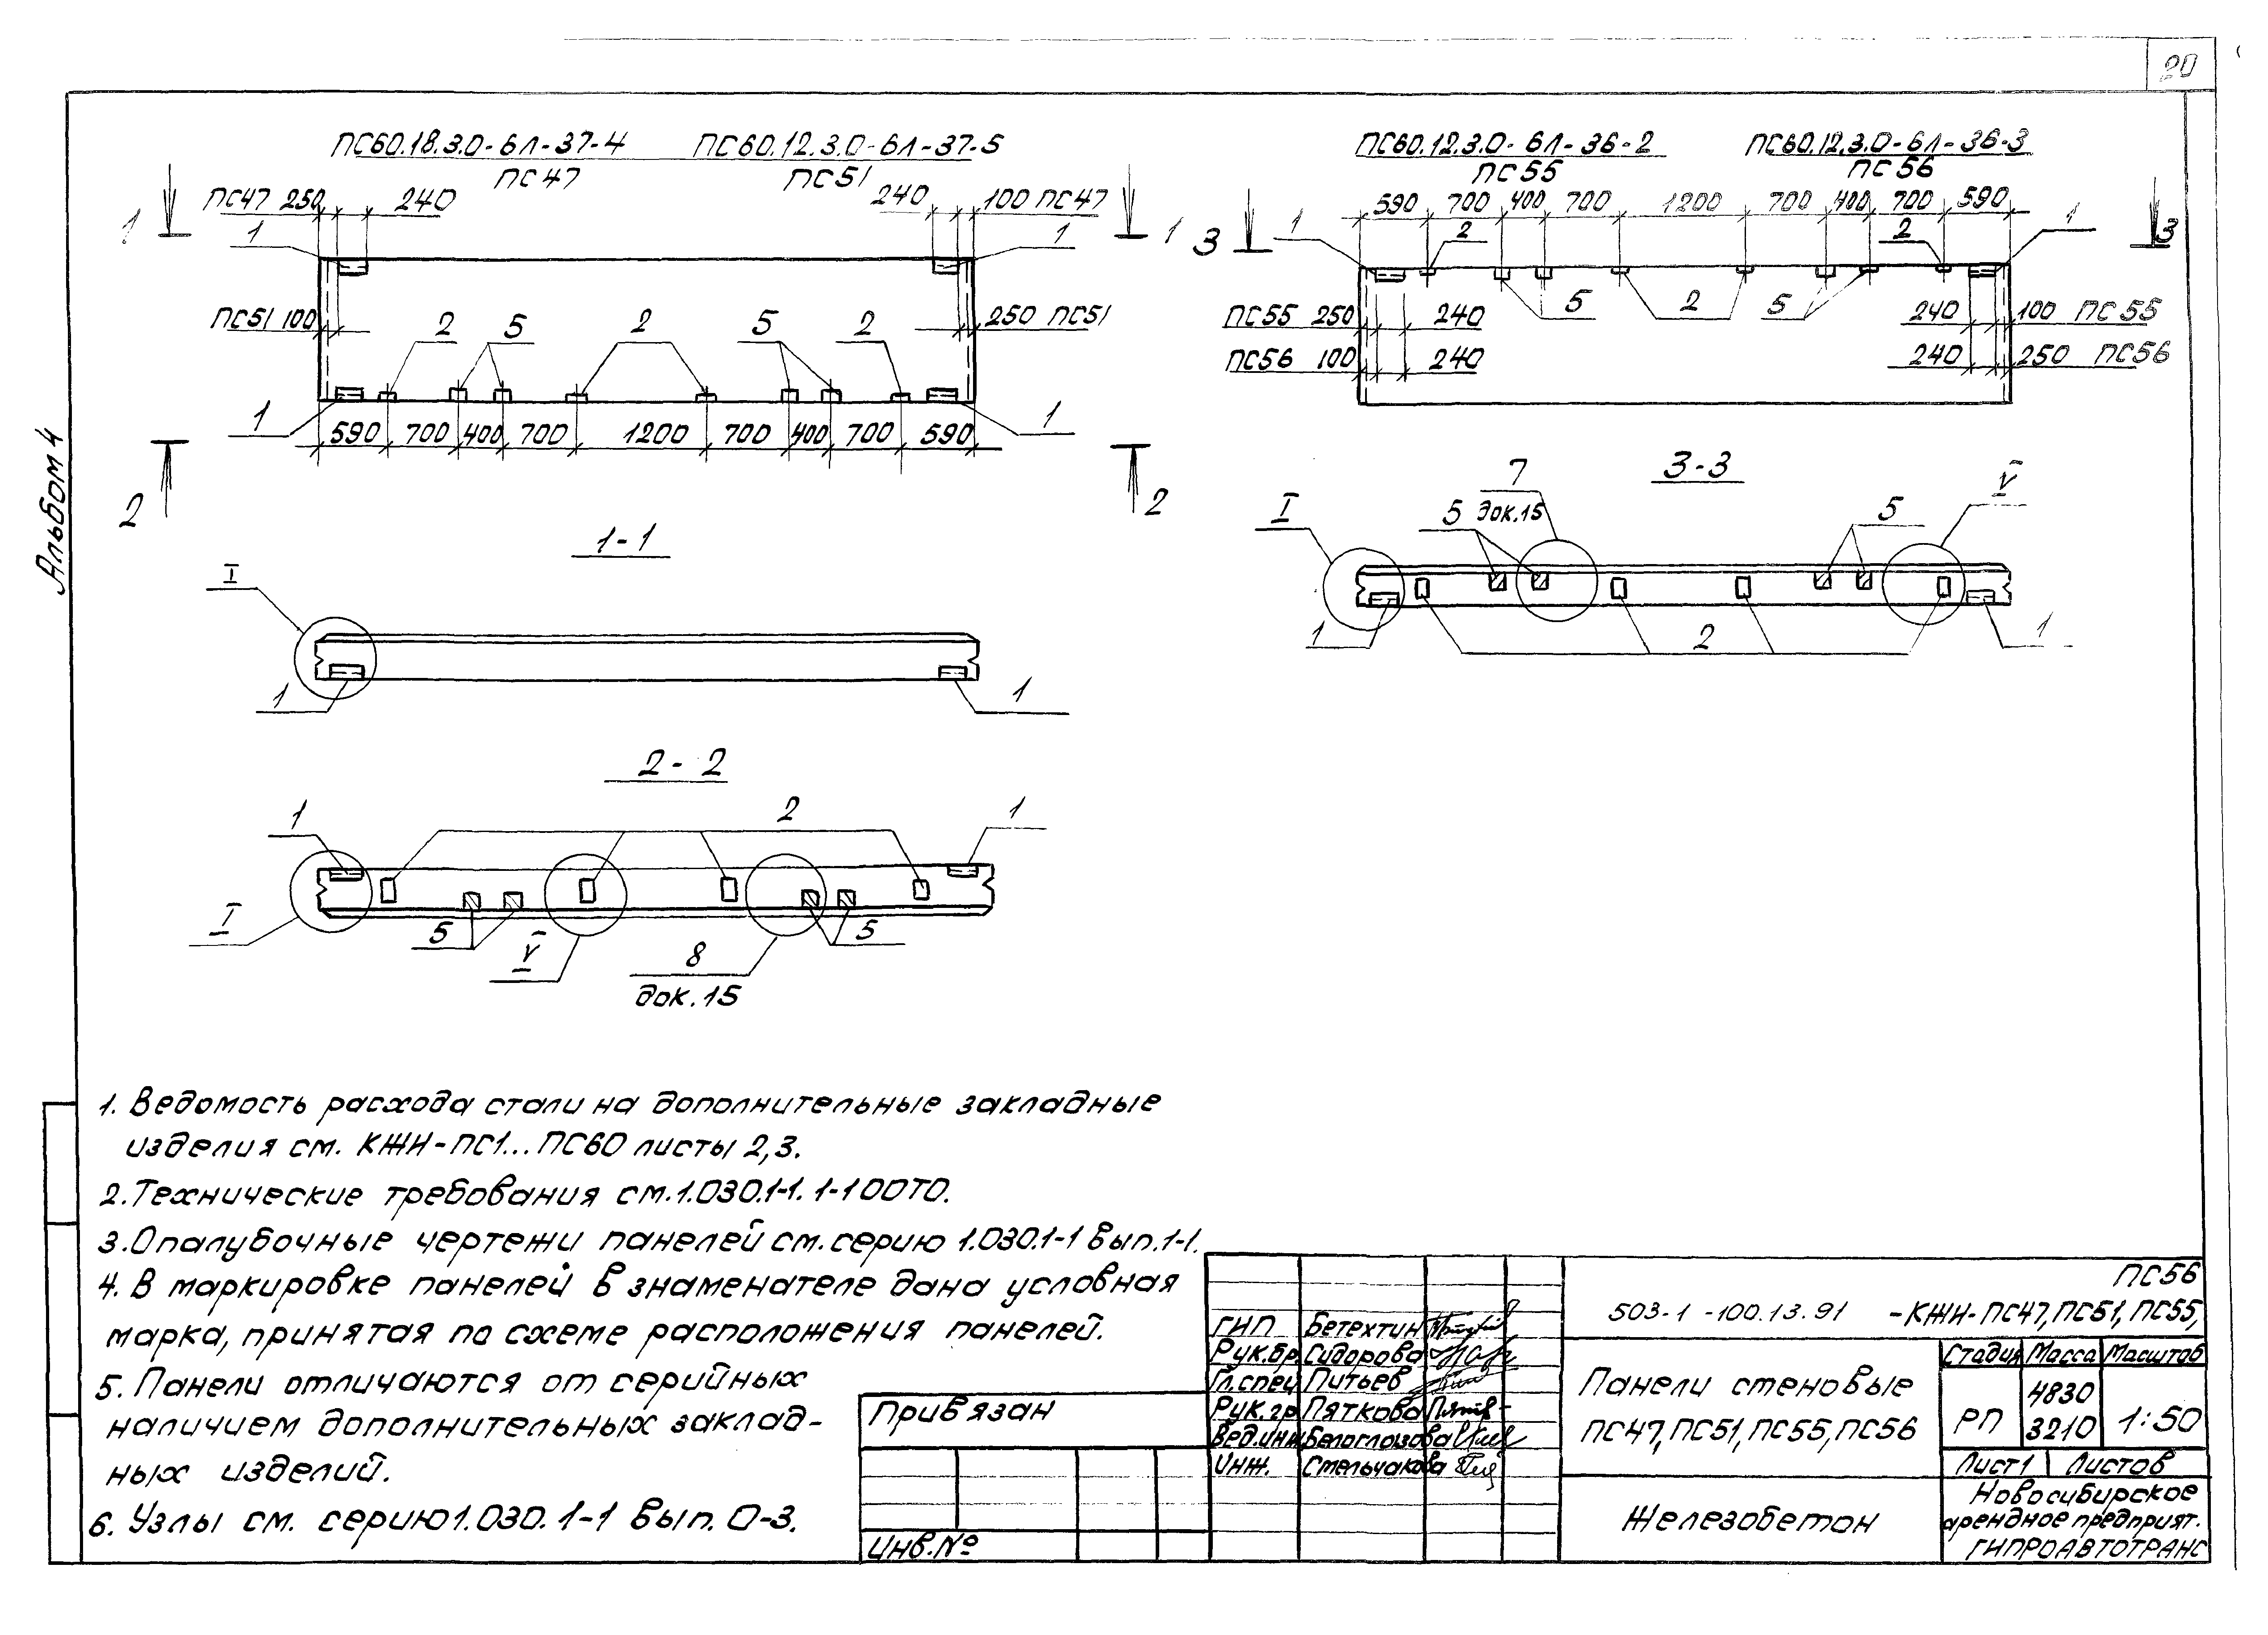 20
Альбом 4
ПС60.18.3.0-6Л-37-4
ПС47
ПС60.12.3.0-6Л-37-5
ПС51
ПС47 250 240
240 100 ПС47
1 1 1 1
ПС51 100 2 5 2 5 2 250 ПС51
1 1
590 700 400 700 1200 700 400 700 590
2 2
ПС60.12.3.0-6Л-36-2
ПС55
ПС60.12.3.0-6Л-36-3
ПС56
590 700 400 700 1200 700 400 700 590
3 1 2 2 1 3
5 2 5
ПС55 250 240
240 100 ПС55
ПС56 100 240
240 250 ПС56
1-1
I
1 1
2-2
1 2 1
I 5 V 5
8
док.15
3-3
7
I 5 док.15 5 V
1 2 1
1. Ведомость расхода стали на дополнительные закладные
изделия см. КЖИ-ПС1...ПС60 листы 2,3.
2. Технические требования см.1.030.1-1. 1-1 00ТО.
3. Опалубочные чертежи панелей см. серию 1.030.1-1 вып.1-1.
4. В маркировке панелей в знаменателе дана условная
марка, принятая по схеме расположения панелей.
5. Панели отличаются от серийных
наличием дополнительных заклад-
ных изделий.
6. Узлы см. серию 1.030.1-1 вып. 0-3.
Привязан
Инв.№
ГИП Бетехтин
Рук.бр. Сидорова
Гл.спец Питьев
Рук.гр Пяткова
Вед.инж Белоглазова
Инж. Стельчакова
ПС56
503-1-100.13.91 -КЖИ-ПС47, ПС51, ПС55,
Панели стеновые
ПС47, ПС51, ПС55, ПС56
Стадия Масса Масштаб
РП 4830 3210 1:50
Лист 1 Листов
Железобетон
Новосибирское
арендное предприят.
ГИПРОАВТОТРАНС